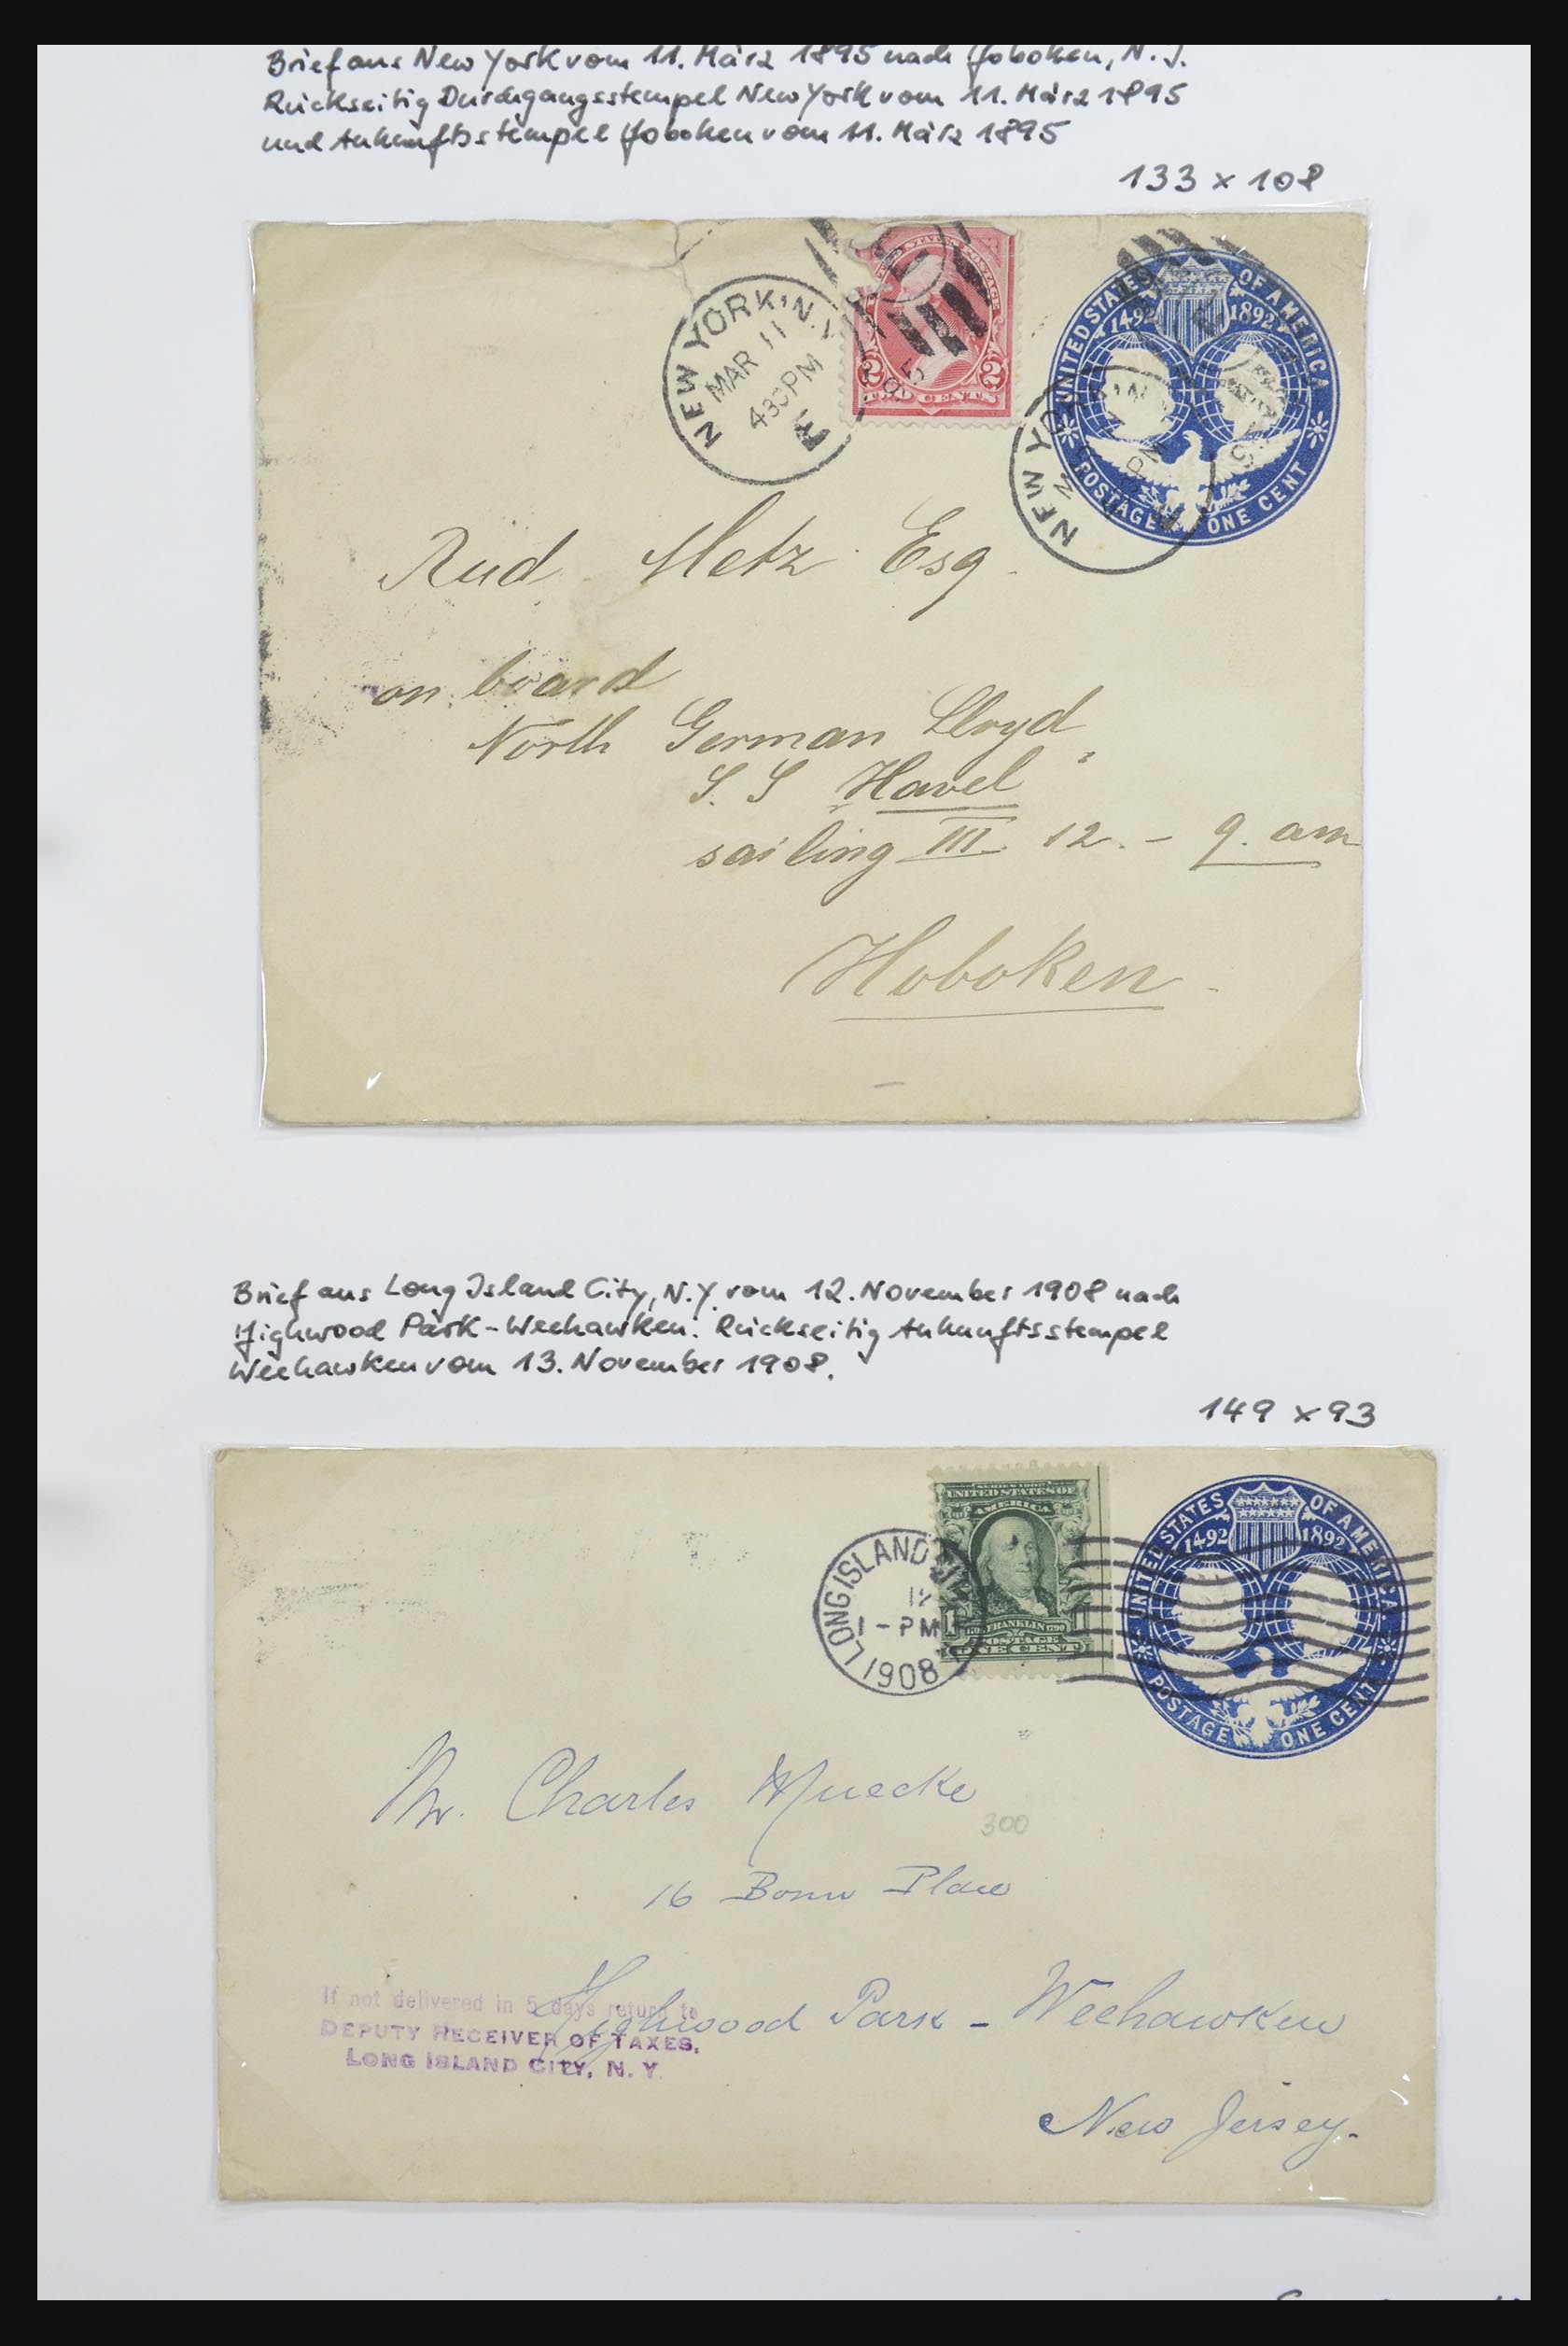 Brief aus New York vom 11. März 1895 nach Hoboken, N.J.
Rückseitig Durchgangsstempel New York vom 11. März 1895
und Ankunftsstempel Hoboken vom 11. März 1895
133 x 108
NEW YORK, N.Y.
MAR 11
430PM
95
UNITED STATES POSTAGE
2 2
TWO CENTS
UNITED STATES OF AMERICA
1492 1892
POSTAGE ONE CENT
NEW YO
PM
Rud. Metz Esq.
on board
North German Lloyd,
S. S. Havel
sailing III. 12. - 9. am
Hoboken -
Brief aus Long Island City, N.Y. vom 12. November 1908 nach
Highwood Park-Weehawken. Rückseitig Ankunftsstempel
Weehawken vom 13. November 1908.
149 x 93
LONG ISLAND CITY
12
1-PM
1908
SERIES 1902
UNITED STATES OF
AMERICA
1706 FRANKLIN 1790
POSTAGE
ONE CENT
UNITED STATES OF AMERICA
1492 1892
POSTAGE ONE CENT
Mr. Charles Muecke
300
16 Bonn Place
Highwood Park - Weehawken
New Jersey.
If not delivered in 5 days return to
DEPUTY RECEIVER OF TAXES,
LONG ISLAND CITY, N. Y.